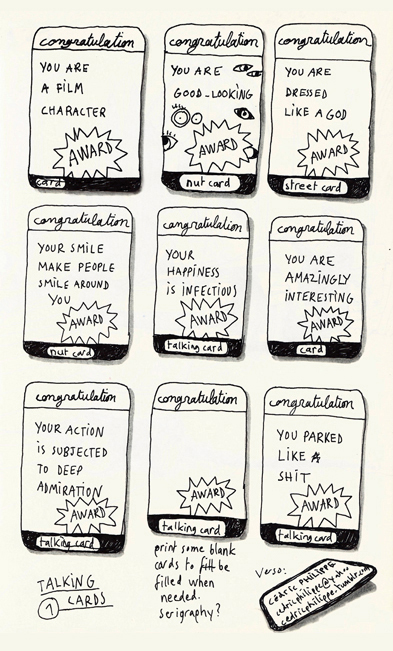 congratulation
YOU ARE
A FILM
CHARACTER
AWARD
card
congratulation
YOU ARE
GOOD-LOOKING
AWARD
nut card
congratulation
YOU ARE
DRESSED
LIKE A GOD
AWARD
street card
congratulation
YOUR SMILE
MAKE PEOPLE
SMILE AROUND
YOU
AWARD
nut card
congratulation
YOUR
HAPPINESS
IS INFECTIOUS
AWARD
talking card
congratulation
YOU ARE
AMAZINGLY
INTERESTING
AWARD
card
congratulation
YOUR ACTION
IS SUBJECTED
TO DEEP
ADMIRATION
AWARD
talking card
congratulation
AWARD
talking card
congratulation
YOU PARKED
LIKE A
SHIT
AWARD
talking card
TALKING
1 CARDS
print some blank
cards to be
filled when
needed.
serigraphy?
Verso:
CÉDRIC PHILIPPE
cedricphilippe.tumblr.com